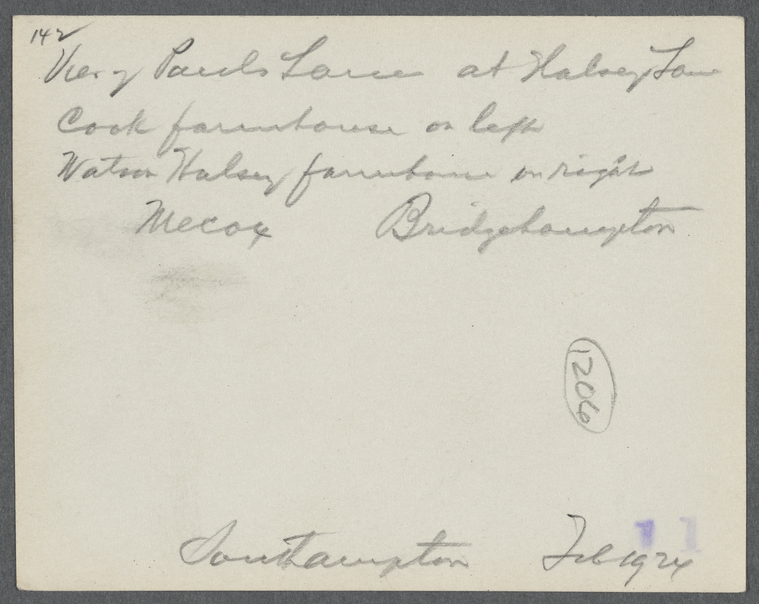 142
View of Pauls Lane at Halsey Lane
Cook farmhouse on left
Watson Halsey farmhouse on right
Mecox Bridgehampton
1206
Southampton Feb 1924
11